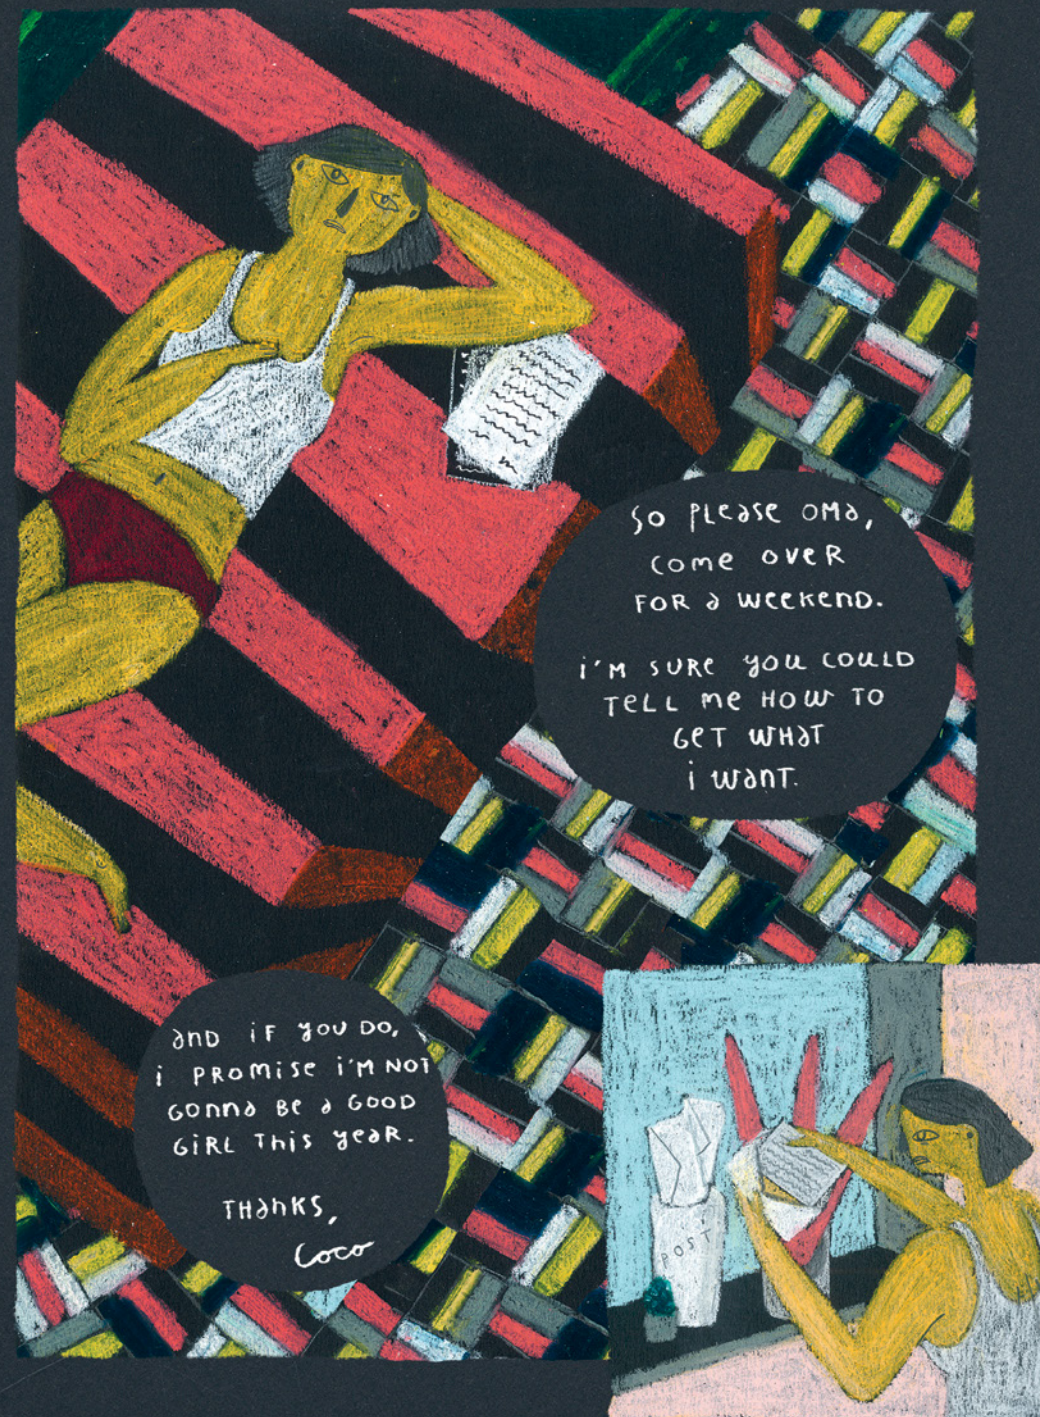 So please Oma,
come over
for a weekend.
i'm sure you could
tell me how to
get what
i want.
and if you do,
i promise i'm not
gonna be a good
girl this year.
Thanks,
Coco
POST